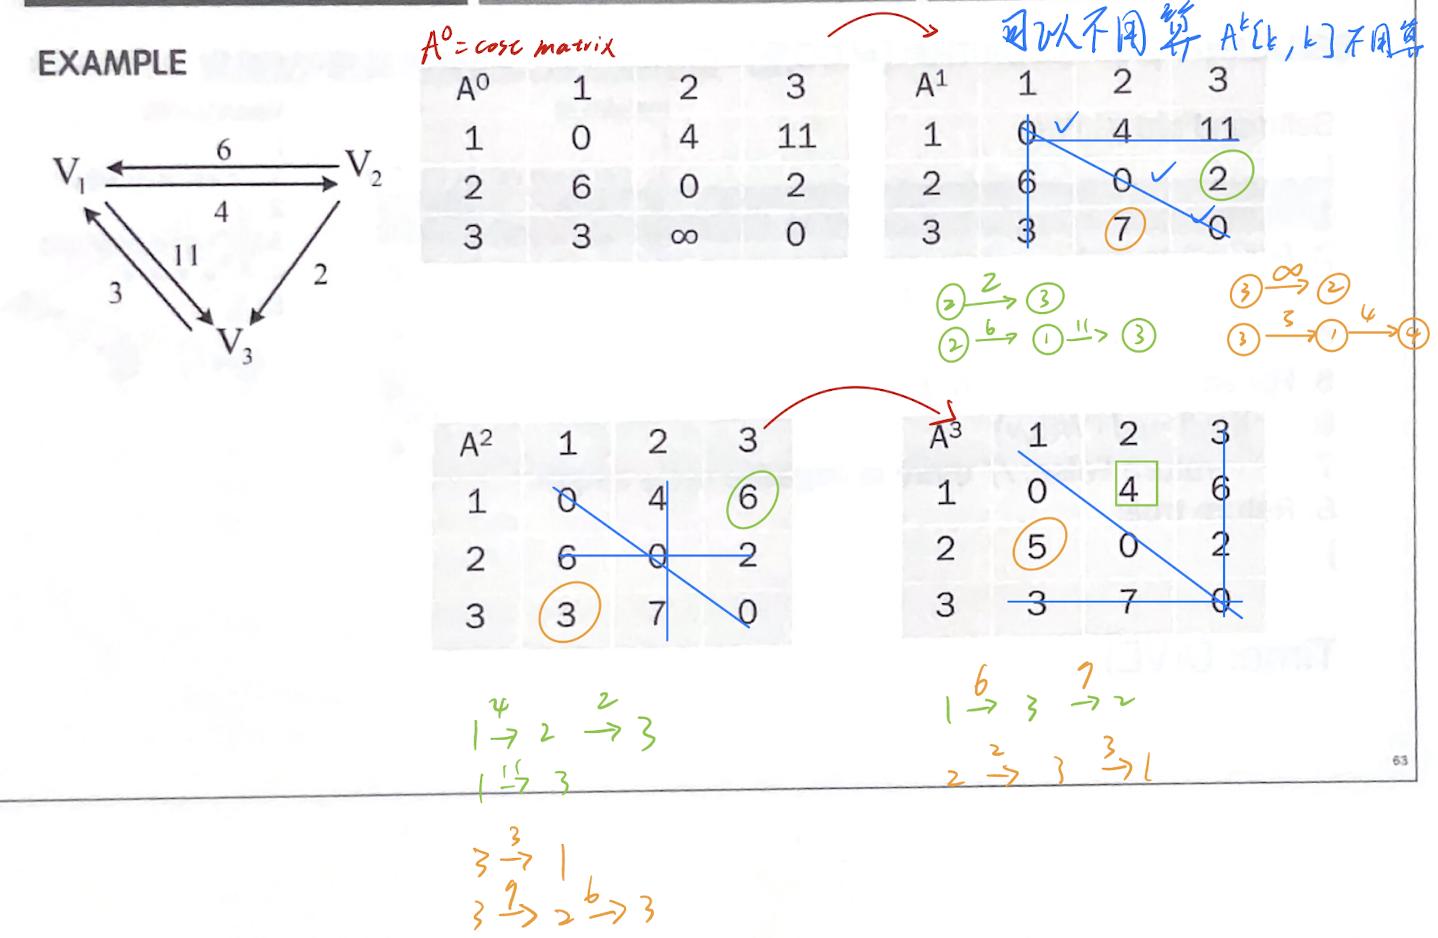 EXAMPLE
A⁰ = cost matrix
可以不用算 Aᵏ[k, k]不用算
V₁ 6 V₂
4
11
3
2
V₃
A⁰ 1 2 3
1 0 4 11
2 6 0 2
3 3 ∞ 0
A¹ 1 2 3
1 0 4 11
2 6 0 2
3 3 7 0
2 2→ 3
2 6→ 1 11→ 3
3 ∞→ 2
3 3→ 1 4→ 4
A² 1 2 3
1 0 4 6
2 6 0 2
3 3 7 0
1 4→ 2 2→ 3
1 11→ 3
3 3→ 1
3 7→ 2 6→ 3
A³ 1 2 3
1 0 4 6
2 5 0 2
3 3 7 0
1 6→ 3 7→ 2
2 2→ 3 3→ 1
63